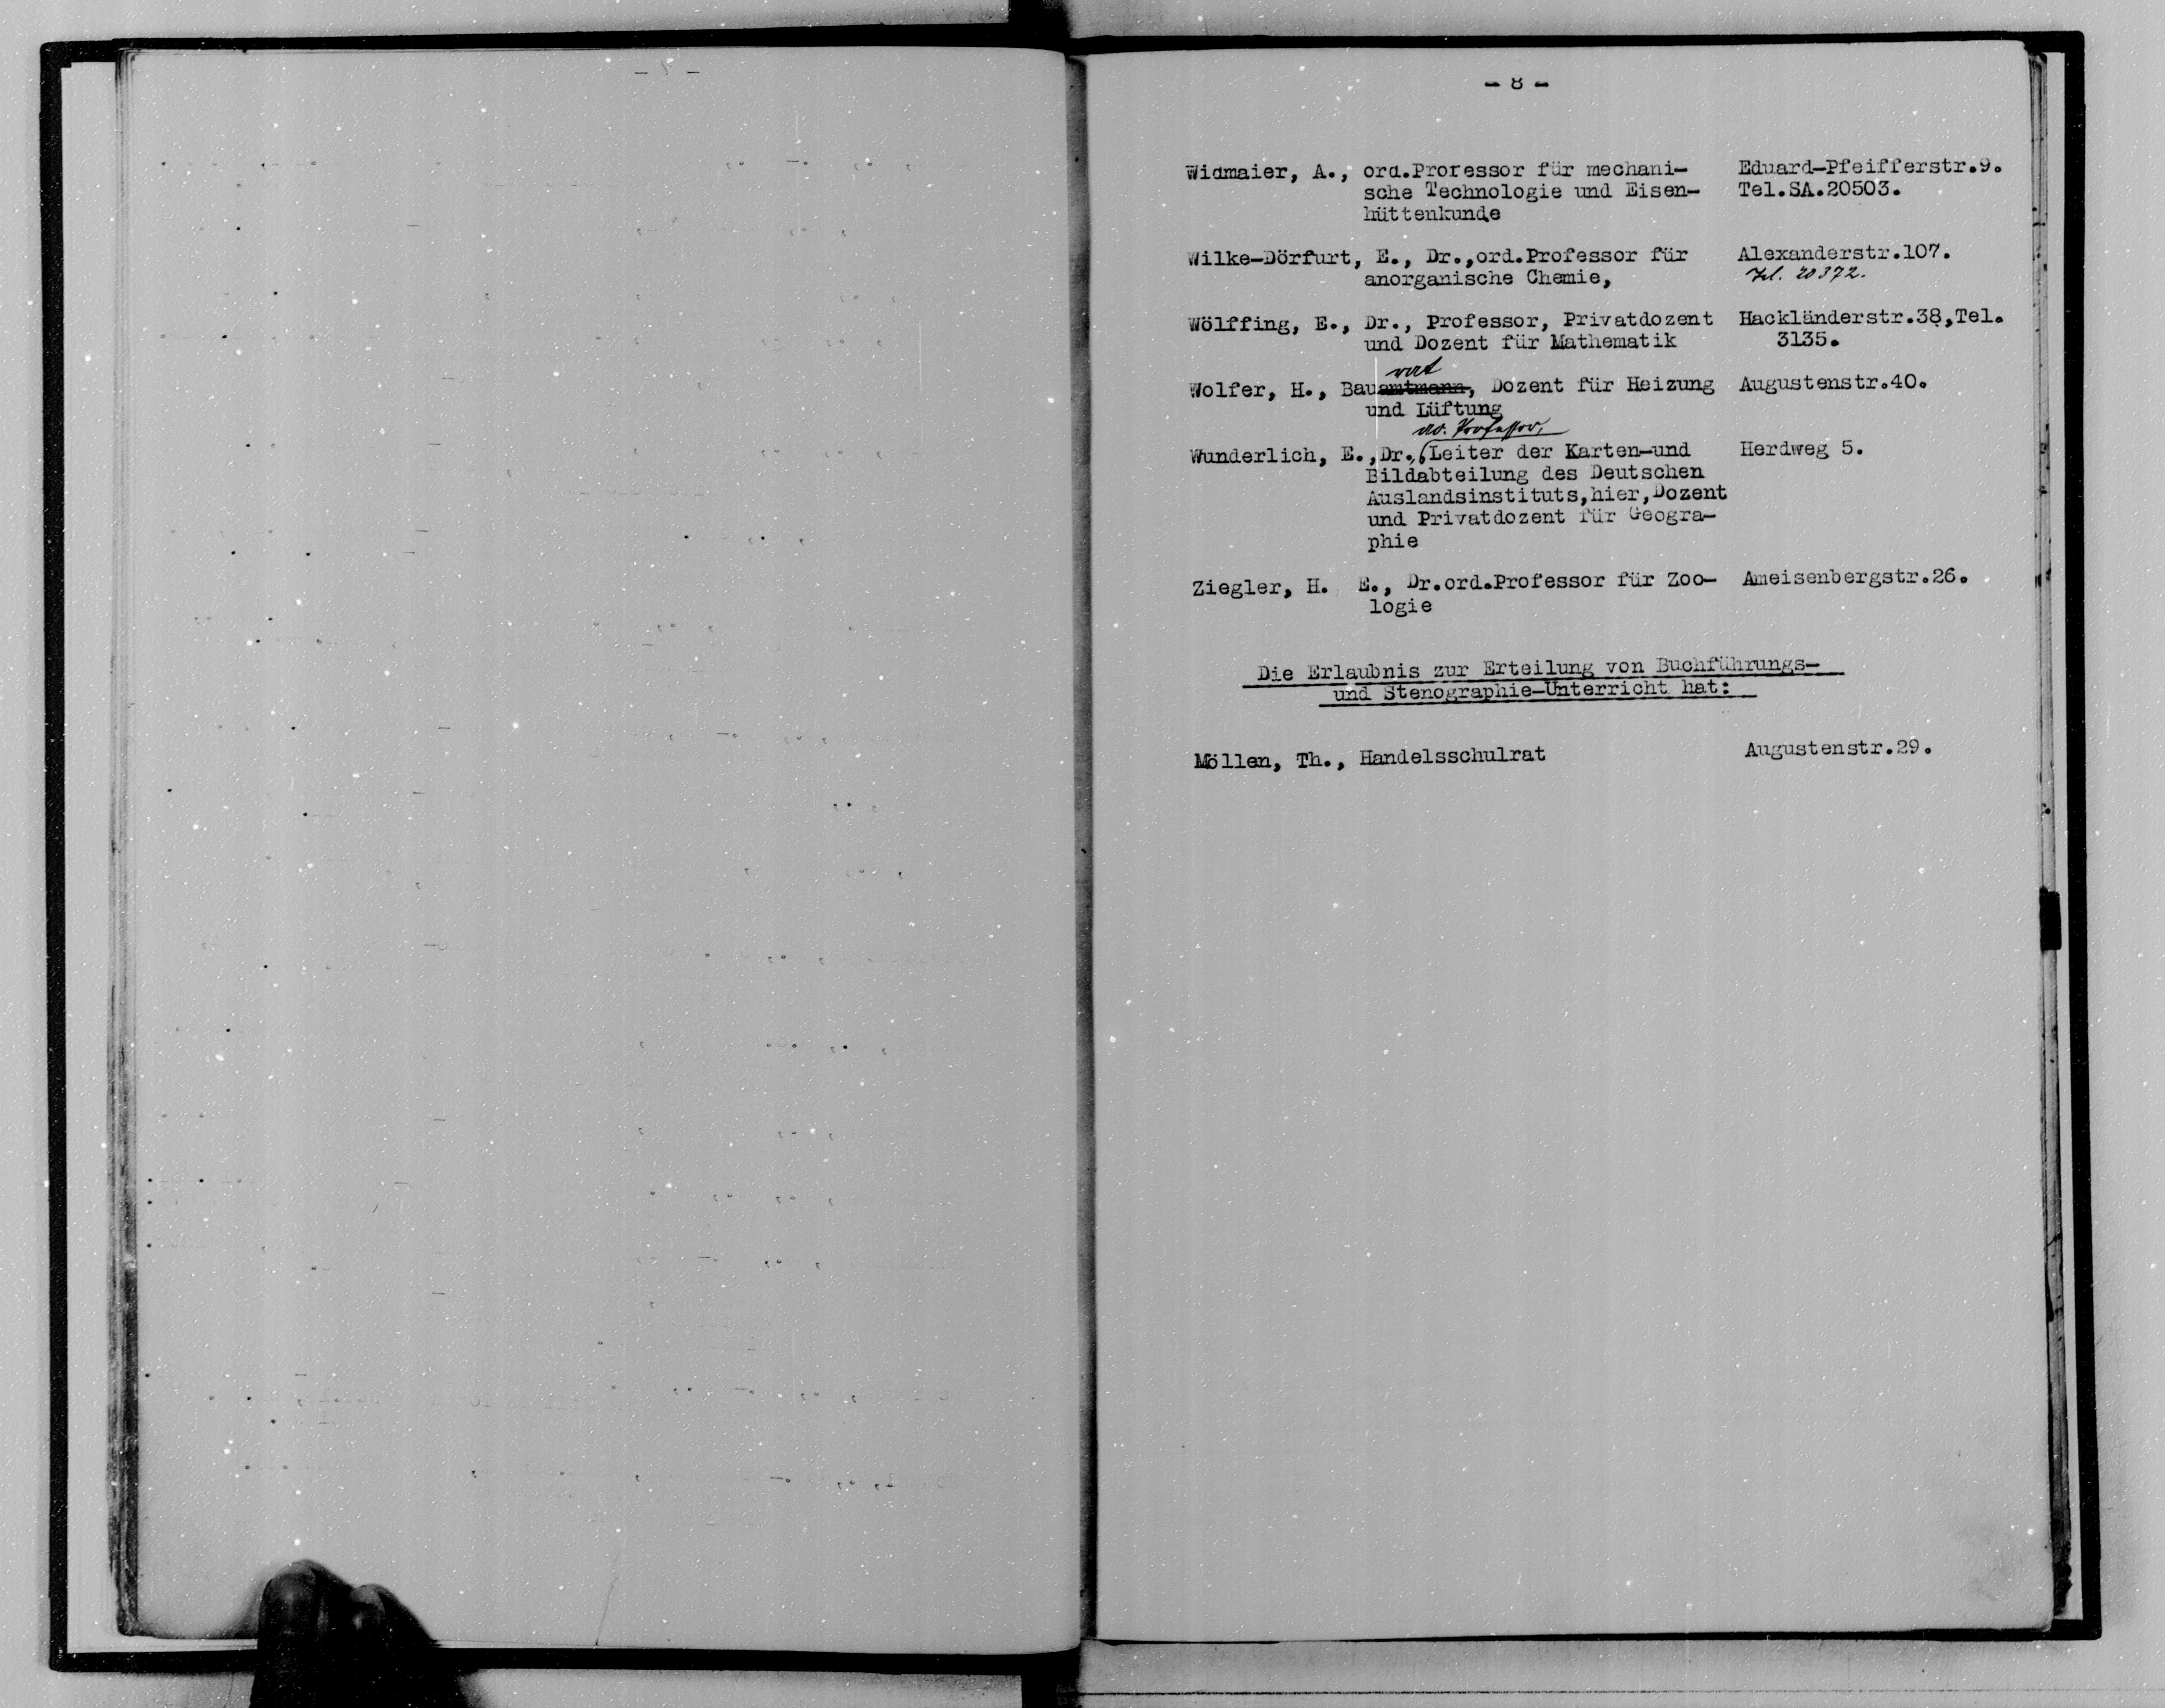 - 8 -
Widmaier, A., ord.Professor für mechani- Eduard-Pfeifferstr.9.
sche Technologie und Eisen- Tel.SA.20503.
hüttenkunde
Wilke-Dörfurt, E., Dr.,ord.Professor für Alexanderstr.107.
anorganische Chemie, Tel. 20372.
Wölffing, E., Dr., Professor, Privatdozent Hackländerstr.38,Tel.
und Dozent für Mathematik 3135.
rat
Wolfer, H., Bauamtmann, Dozent für Heizung Augustenstr.40.
und Lüftung
Professor,
Wunderlich, E.,Dr., Leiter der Karten-und Herdweg 5.
Bildabteilung des Deutschen
Auslandsinstituts,hier,Dozent
und Privatdozent für Geogra-
phie
Ziegler, H. E., Dr.ord.Professor für Zoo- Ameisenbergstr.26.
logie
Die Erlaubnis zur Erteilung von Buchführungs-
und Stenographie-Unterricht hat:
Möllen, Th., Handelsschulrat Augustenstr.29.